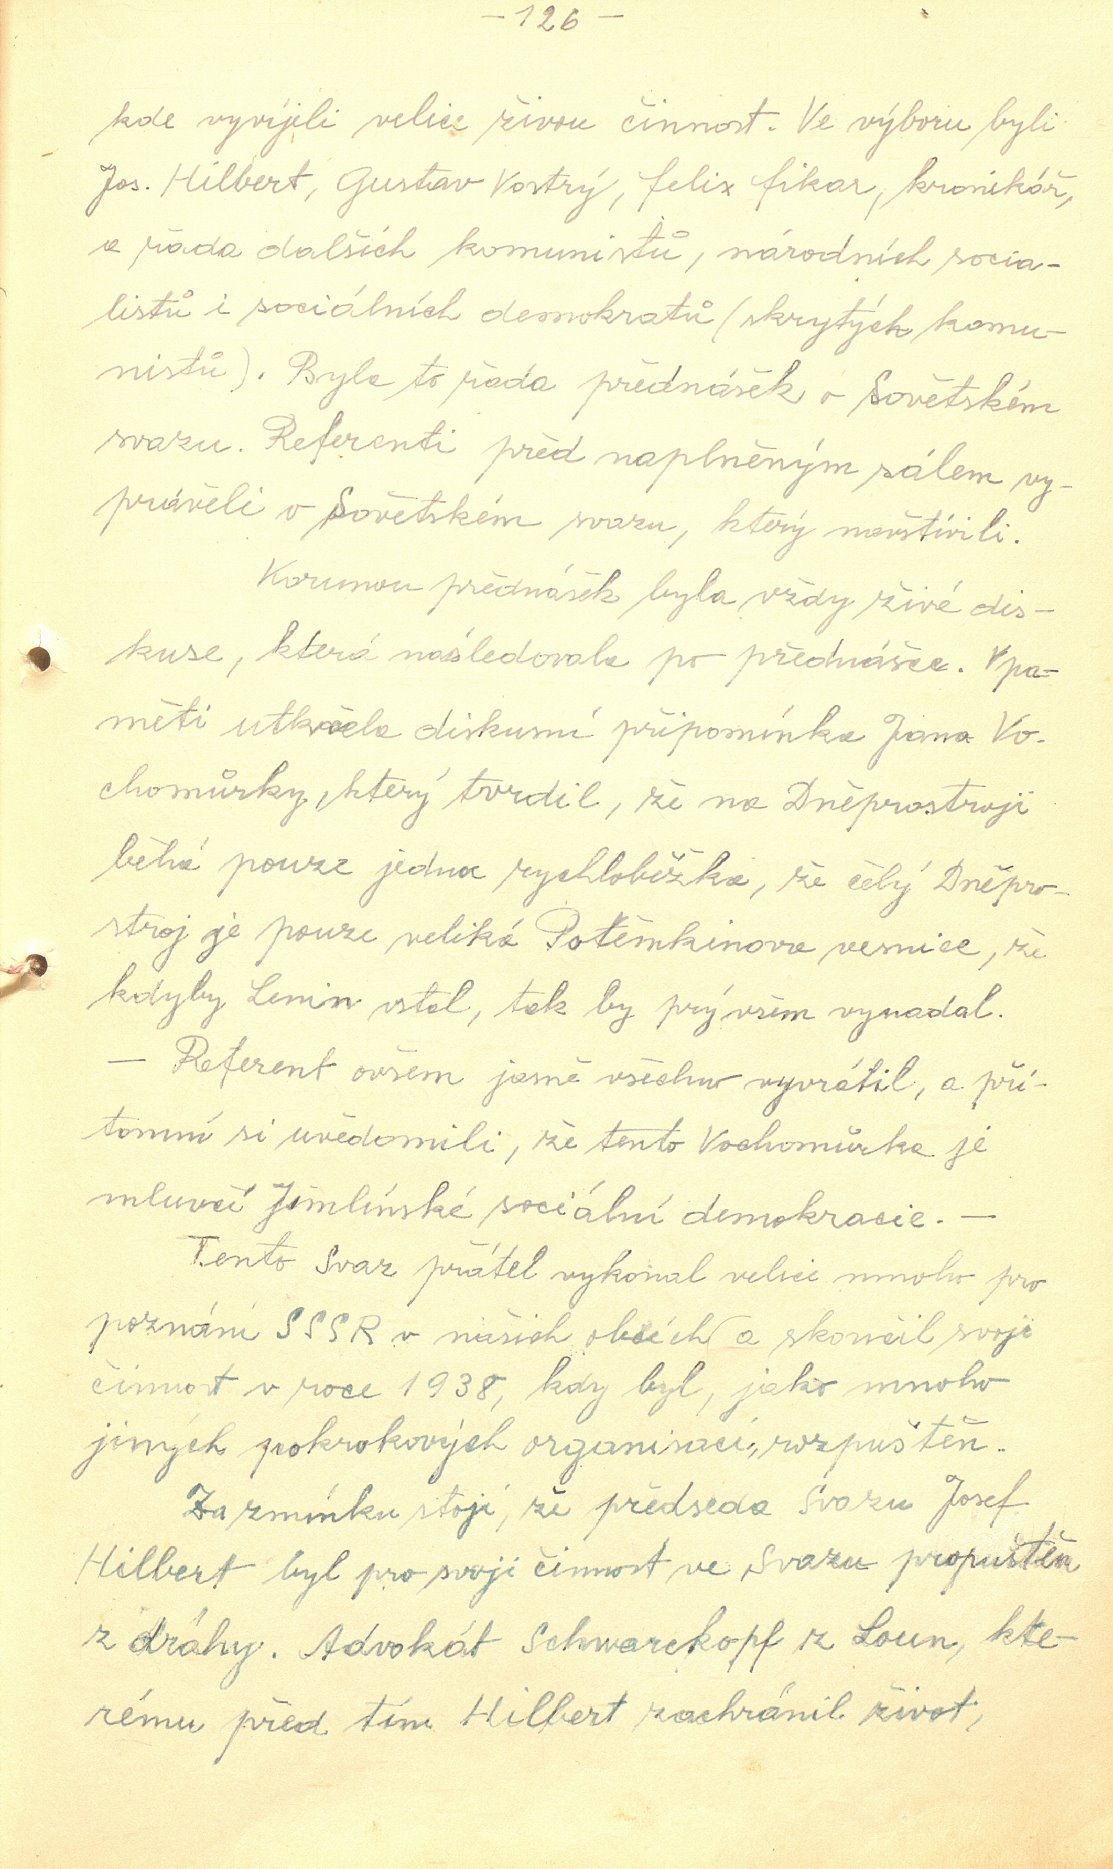 - 126 -
kde vyvíjeli velice živou činnost. Ve výboru byli
Jos. Hilbert, Gustav Vostrý, Felix Fikar, kronikář,
a řada dalších komunistů, národních socia-
listů i sociálních demokratů (skrytých komu-
nistů). Byla to řada přednášek o Sovětském
svazu. Referenti před naplněným sálem vy-
právěli o Sovětském svazu, který navštívili.
Korunou přednášek byla vždy živá dis-
kuse, která následovala po přednášce. V pa-
měti utkvěla diskusní připomínka Jana Vo-
chomůrky, který tvrdil, že na Dněprostroji
běhá pouze jedna rychloběžka, že celý Dněpro-
stroj je pouze veliká Potěmkinova vesnice, že
kdyby Lenin vstal, tak by prý všem vynadal.
— Referent ovšem jasně všechno vyvrátil, a pří-
tomní si uvědomili, že tento Vochomůrka je
mluvčí Jimlínské sociální demokracie. —
Tento Svaz přátel vykonal velice mnoho pro
poznání SSSR v našich obcích a skončil svoji
činnost v roce 1938, kdy byl, jako mnoho
jiných pokrokových organisací, rozpuštěn.
Za zmínku stojí, že předseda Svazu Josef
Hilbert byl pro svoji činnost ve Svazu propuštěn
z dráhy. Advokát Schwarckopf z Loun, kte-
rému před tím Hilbert zachránil život,